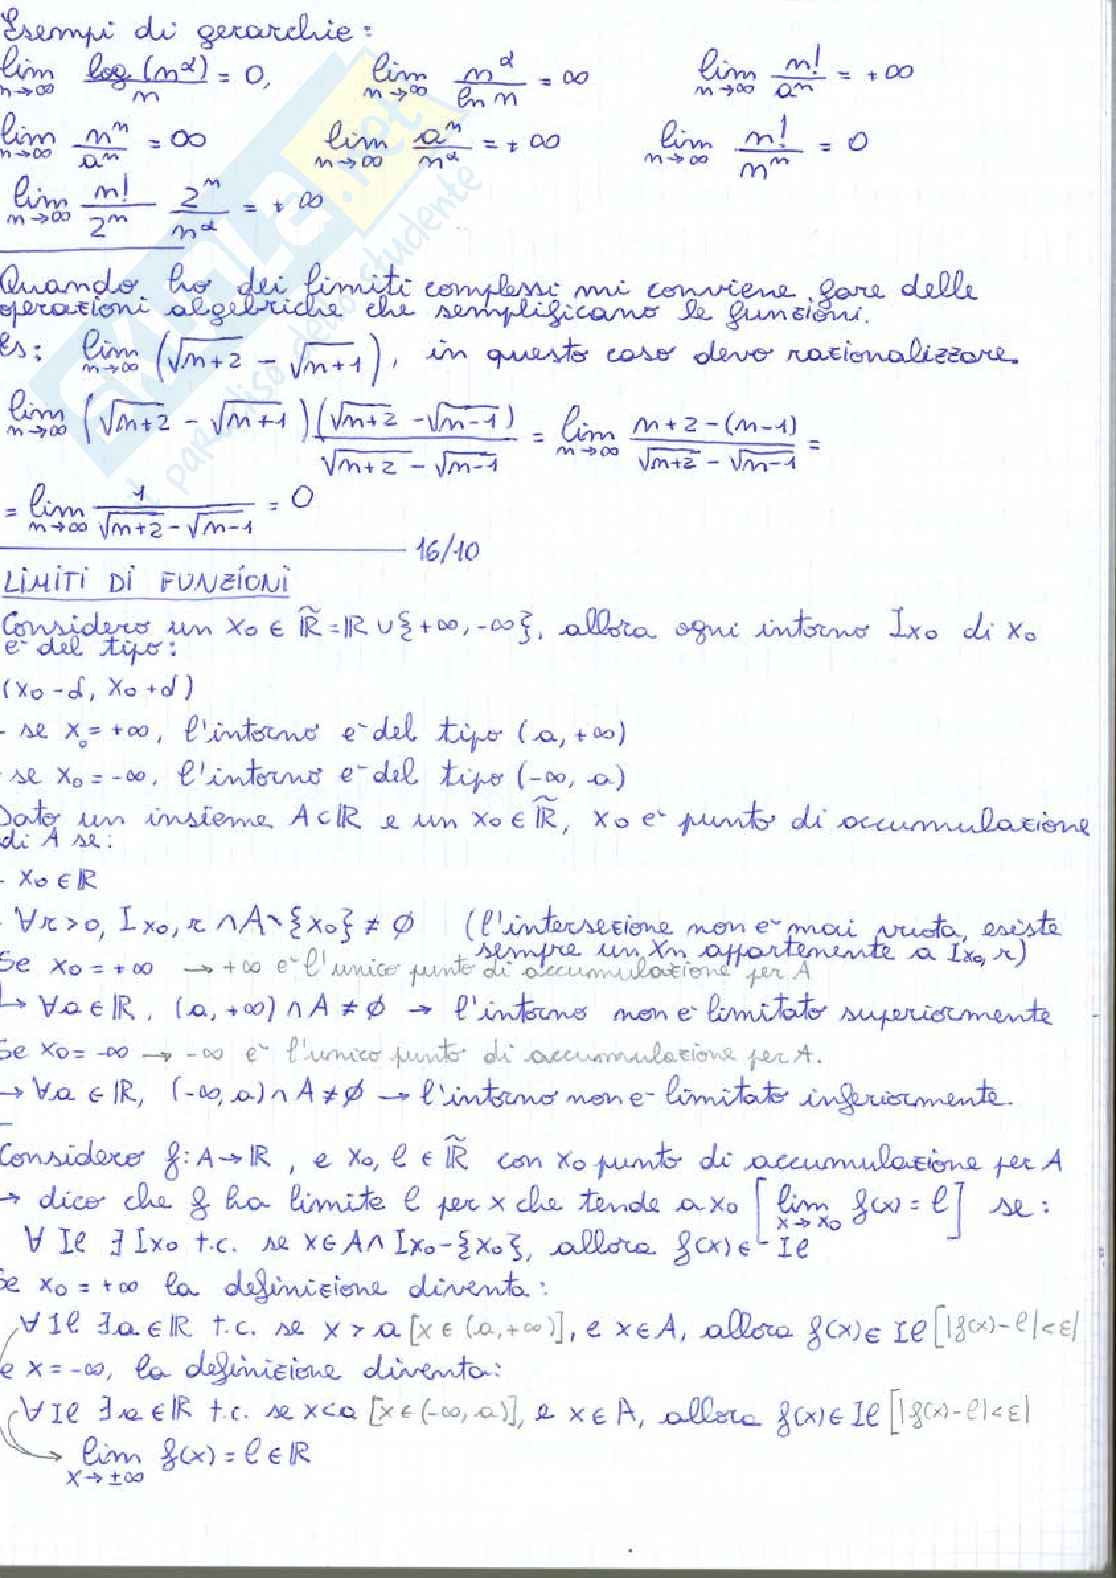 Esempi di gerarchie:
lim n→∞ log(n^α)/n = 0, lim n→∞ n^α/ln n = ∞ lim n→∞ n!/a^n = +∞
lim n→∞ n^n/a^n = ∞ lim n→∞ a^n/n^α = +∞ lim n→∞ n!/n^n = 0
lim n→∞ n!/2^n 2^n/n^α = +∞
Quando ho dei limiti complessi mi conviene fare delle
operazioni algebriche che semplificano le funzioni.
Es: lim n→∞ (√n+2 - √n+1), in questo caso devo razionalizzare.
lim n→∞ (√n+2 - √n+1) (√n+2 - √n-1)/(√n+2 - √n-1) = lim n→∞ n+2-(n-1)/(√n+2 - √n-1) =
= lim n→∞ 1/(√n+2 - √n-1) = 0
16/10
LIMITI DI FUNZIONI
Considero un x₀ ∈ R̃ = ℝ ∪ {+∞, -∞}, allora ogni intorno Ix₀ di x₀
e- del tipo:
(x₀-d, x₀+d)
- se x₀ = +∞, l'intorno e- del tipo (a, +∞)
- se x₀ = -∞, l'intorno e- del tipo (-∞, a)
Dato un insieme A⊂ℝ e un x₀ ∈ R̃, x₀ e- punto di accumulazione
di A se:
- x₀ ∈ ℝ
- ∀r>0, Ix₀,r ∩ A \ {x₀} ≠ ∅ (l'intersezione non e- mai vuota, esiste
sempre un xn appartenente a Ix₀, r)
Se x₀ = +∞ → +∞ e- l'unico punto di accumulazione per A
↳ ∀a ∈ ℝ, (a, +∞) ∩ A ≠ ∅ → l'intorno non e- limitato superiormente
Se x₀ = -∞ → -∞ e- l'unico punto di accumulazione per A.
→ ∀a ∈ ℝ, (-∞, a) ∩ A ≠ ∅ → l'intorno non e- limitato inferiormente.
Considero f: A→ℝ, e x₀, l ∈ R̃ con x₀ punto di accumulazione per A
→ dico che f ha limite l per x che tende a x₀ [lim x→x₀ f(x) = l] se:
∀ Il ∃ Ix₀ t.c. se x ∈ A ∩ Ix₀ - {x₀}, allora f(x) ∈ Il
Se x₀ = +∞ la definizione diventa:
∀ Il ∃ a ∈ ℝ t.c. se x > a [x ∈ (a, +∞)], e x ∈ A, allora f(x) ∈ Il [|f(x) - l| < ε|
e x = -∞, la definizione diventa:
∀ Il ∃ a ∈ ℝ t.c. se x < a [x ∈ (-∞, a)], e x ∈ A, allora f(x) ∈ Il [|f(x) - l| < ε|
→ lim x→±∞ f(x) = l ∈ ℝ
skuola.net
il paradiso dello studente